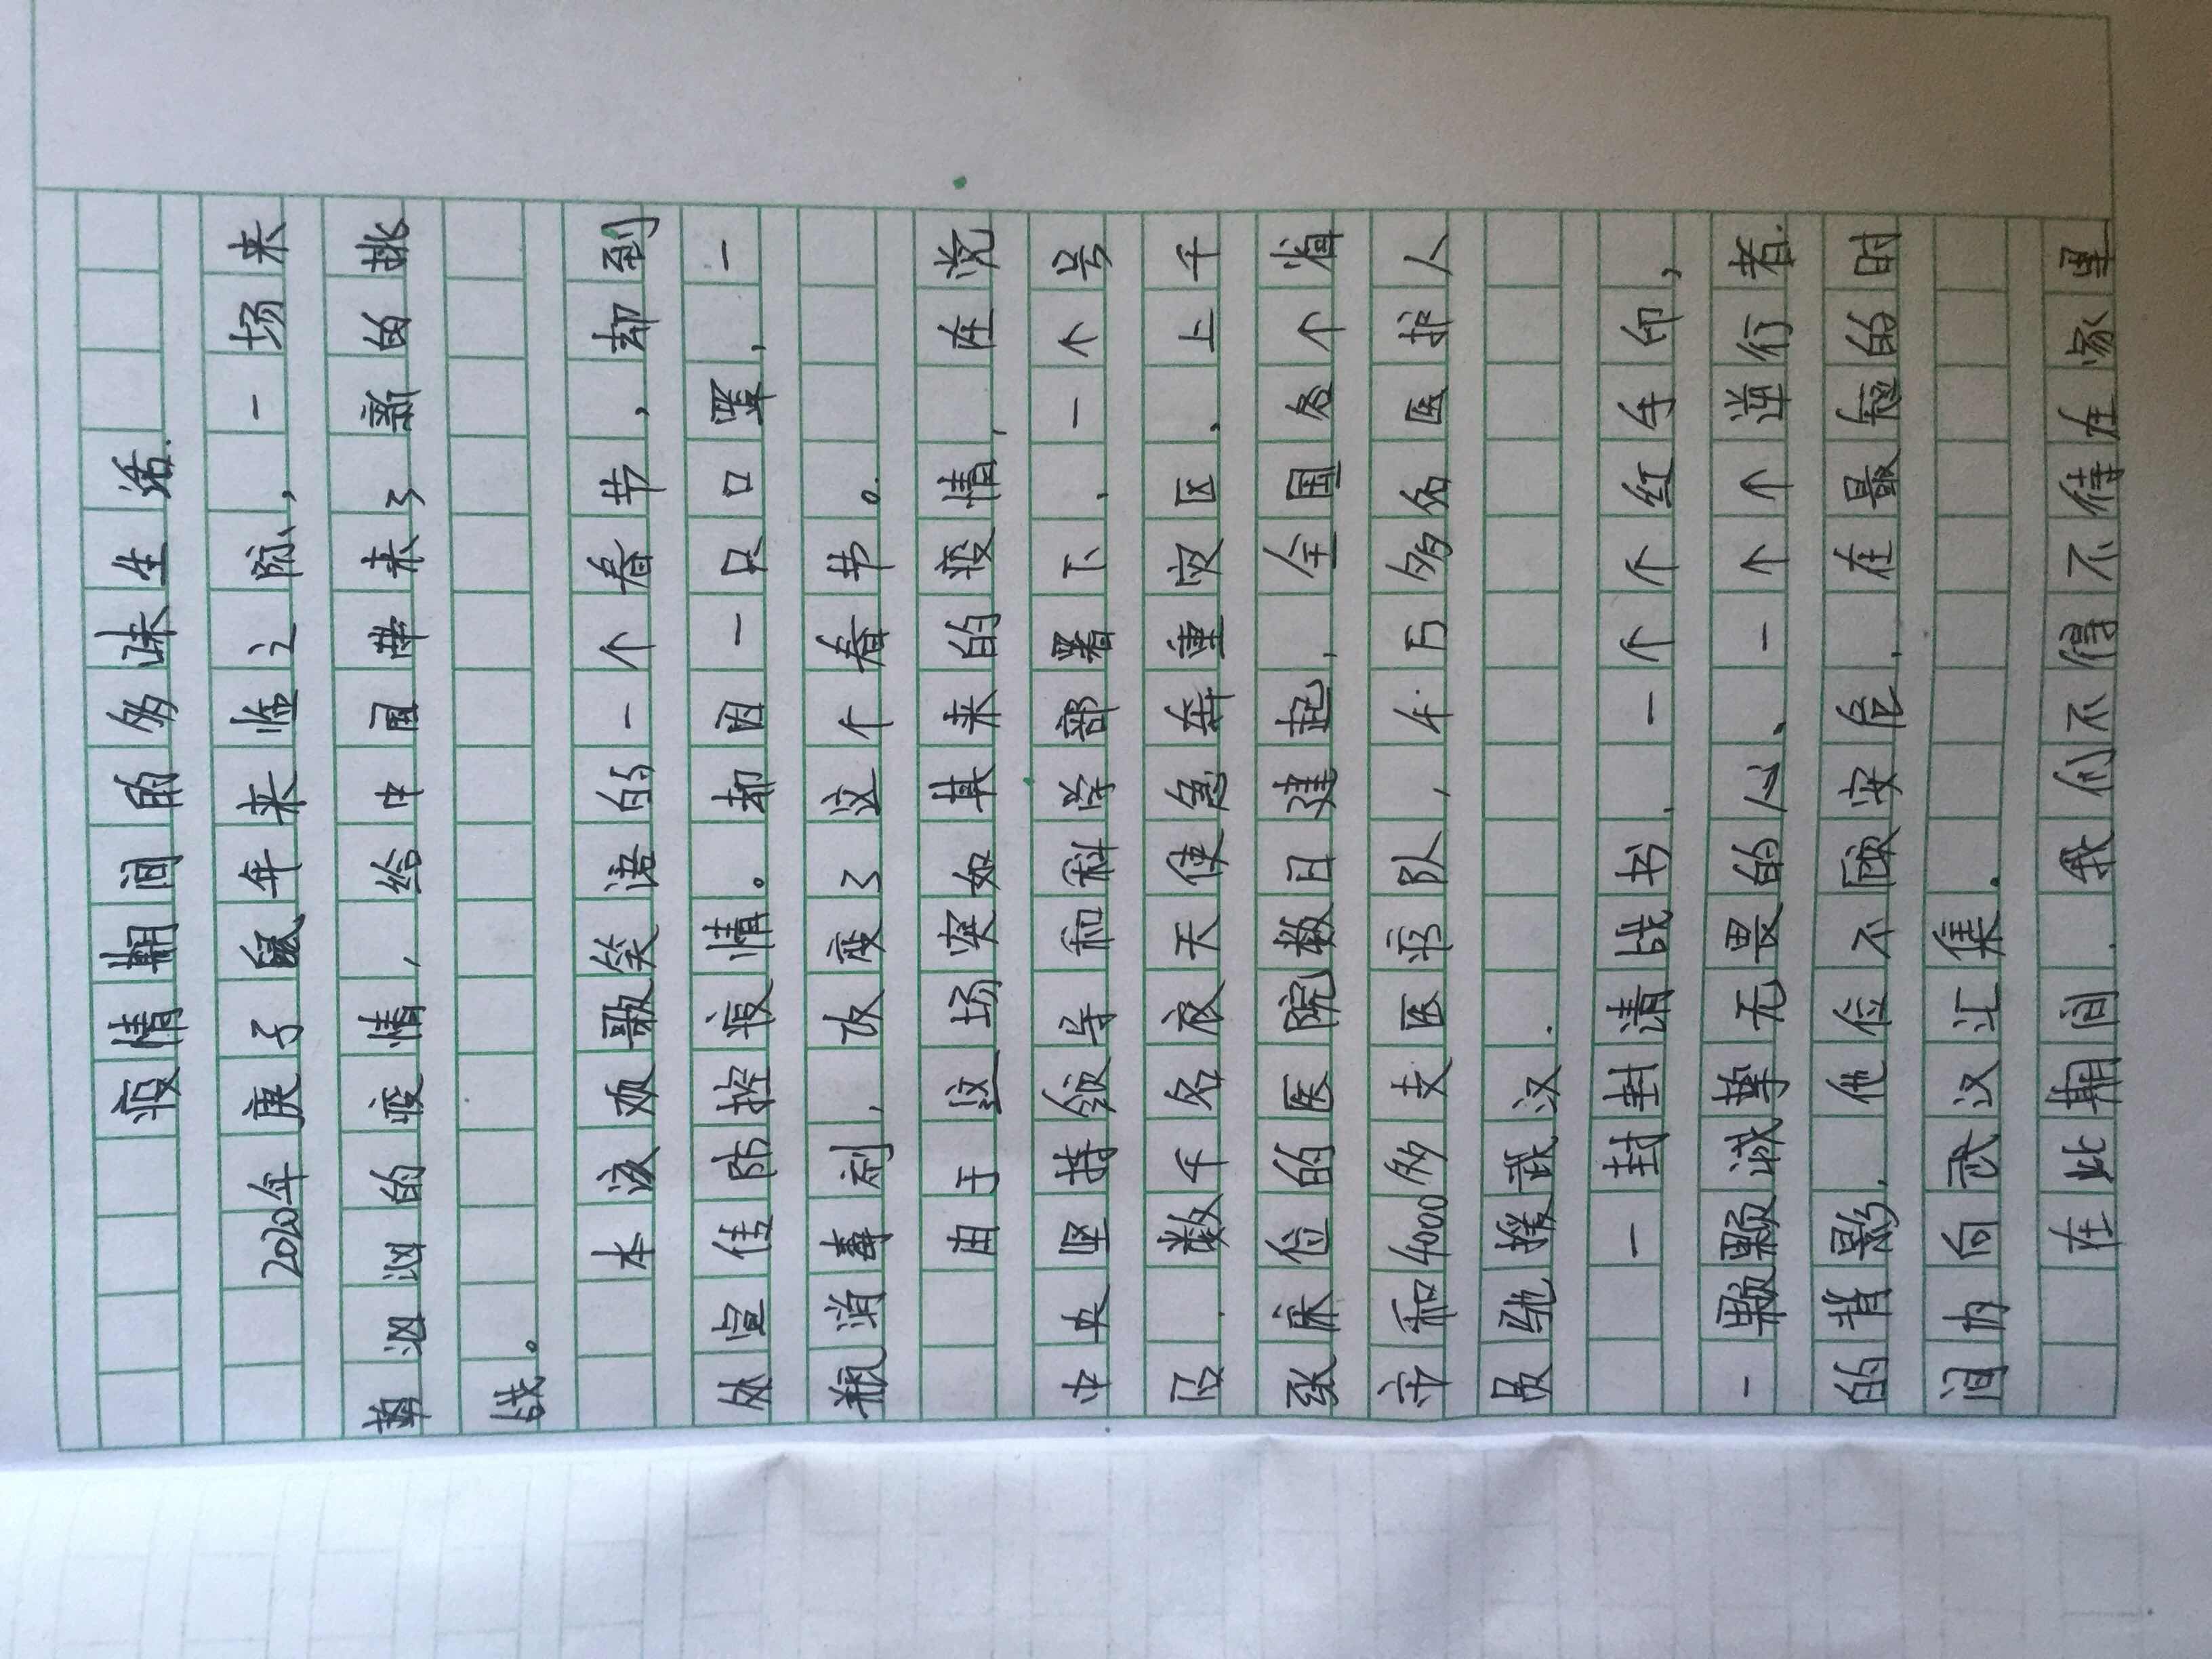 疫情期间的多味生活.
2020年庚子鼠年来临之际,一场来
势汹汹的疫情,给中国带来了新的挑
战。
本该欢歌笑语的一个春节,却到
处宣传防控疫情。却因一只口罩,一
瓶消毒剂,改变了这个春节。
由于这场突如其来的疫情,在党
中央坚持领导和科学部署下、一个号
召.数千名夜天使急奔重灾区.上千
张床位的医院数日建起,全国各个省
市和4000多支医疗队,4万多名医护人
员驰援武汉.
一封封请战书.一个个红手印,
一颗颗诚挚无畏的心、一个个逆行者.
的背影.他位不顾安危,在最短的时
间内向武汉汇集.
在此期间.我们不得不待在家里